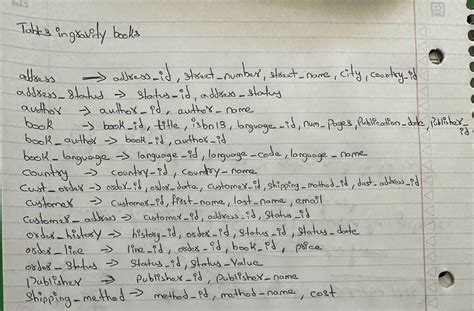 Tables in gravity books
address → address_id, street_number, street_name, city, country_id
address_status → status_id, address_status
author → author_id, author_name
book → book_id, title, isbn13, language_id, num_pages, Publication_date, Publisher_id
book_author → book_id, author_id
book_language → language_id, language_code, language_name
country → country_id, country_name
cust_order → order_id, order_date, customer_id, shipping_method_id, dest_address_id
customer → customer_id, first_name, last_name, email
customer_address → customer_id, address_id, status_id
order_history → history_id, order_id, status_id, status_date
order_line → line_id, order_id, book_id, price
order_status → status_id, status_value
publisher → Publisher_id, Publisher_name
shipping_method → method_id, method_name, cost